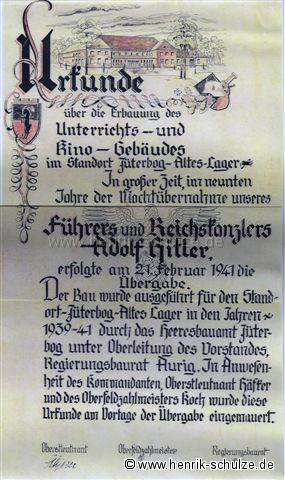 Urkunde
über die Erbauung des
Unterrichts- und
Kino-Gebäudes
im Standort Jüterbog-Altes-Lager
In großer Zeit, im neunten
Jahre der Machtübernahme unseres
Führers und Reichskanzlers
Adolf Hitler,
erfolgte am 21. Februar 1941 die
Übergabe.
Der Bau wurde ausgeführt für den Stand-
ort-Jüterbog-Altes Lager in den Jahren
1939-41 durch das Heeresbauamt Jüter-
bog unter Oberleitung des Vorstandes,
Regierungsbaurat Aurig. In Anwesen-
heit des Kommandanten, Oberstleutnant Häfker
und des Oberfeldzahlmeisters Koch wurde diese
Urkunde am Vortage der Übergabe eingemauert.
Oberstleutnant Oberfeldzahlmeister Regierungsbaurat
© www.henrik-schulze.de